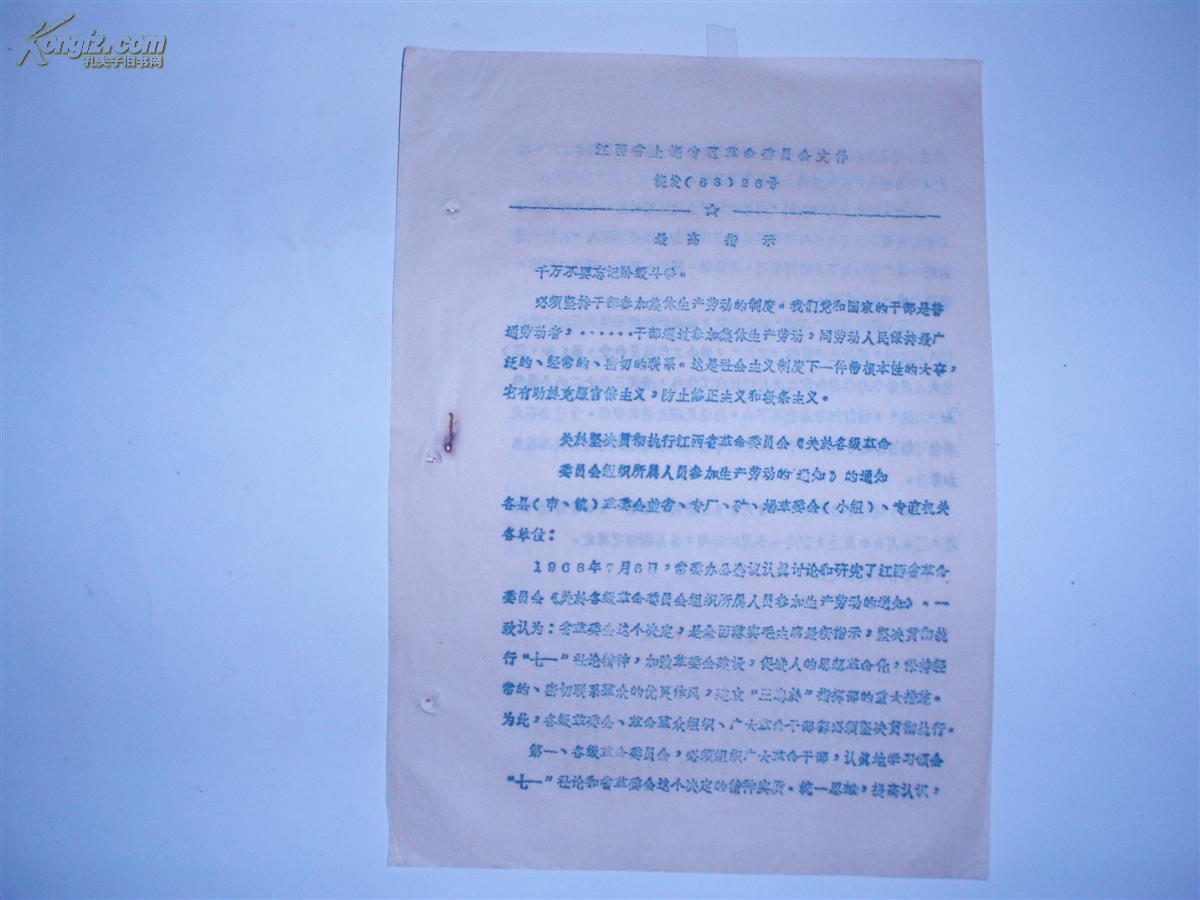 Kongfz.com
孔夫子旧书网
江西省上饶专区革命委员会文件
饶发(68)26号
最高指示
千万不要忘记阶级斗争。
必须坚持干部参加集体生产劳动的制度。我们党和国家的干部是普
通劳动者,······干部通过参加集体生产劳动,同劳动人民保持最广
泛的、经常的、密切的联系。这是社会主义制度下一件带根本性的大事,
它有助於克服官僚主义,防止修正主义和教条主义。
关於坚决贯彻执行江西省革命委员会《关於各级革命
委员会组织所属人员参加生产劳动的通知》的通知
各县(市、镇)革委会並省、专厂、矿、场革委会(小组)、专直机关
各单位:
1968年7月6日,常委办公会议认真讨论和研究了江西省革命
委员会《关於各级革命委员会组织所属人员参加生产劳动的通知》。一
致认为:省革委会这个决定,是全面落实毛主席最新指示,坚决贯彻执
行“七一”社论精神,加强革委会建设,促进人的思想革命化,保持经
常的、密切联系群众的优良作风,建立“三忠於”指挥部的重大措施。
为此,各级革委会、革命群众组织、广大革命干部都必须坚决贯彻执行。
第一、各级革命委员会,必须组织广大革命干部,认真地学习领会
“七一”社论和省革委会这个决定的精神实质。统一思想,提高认识,